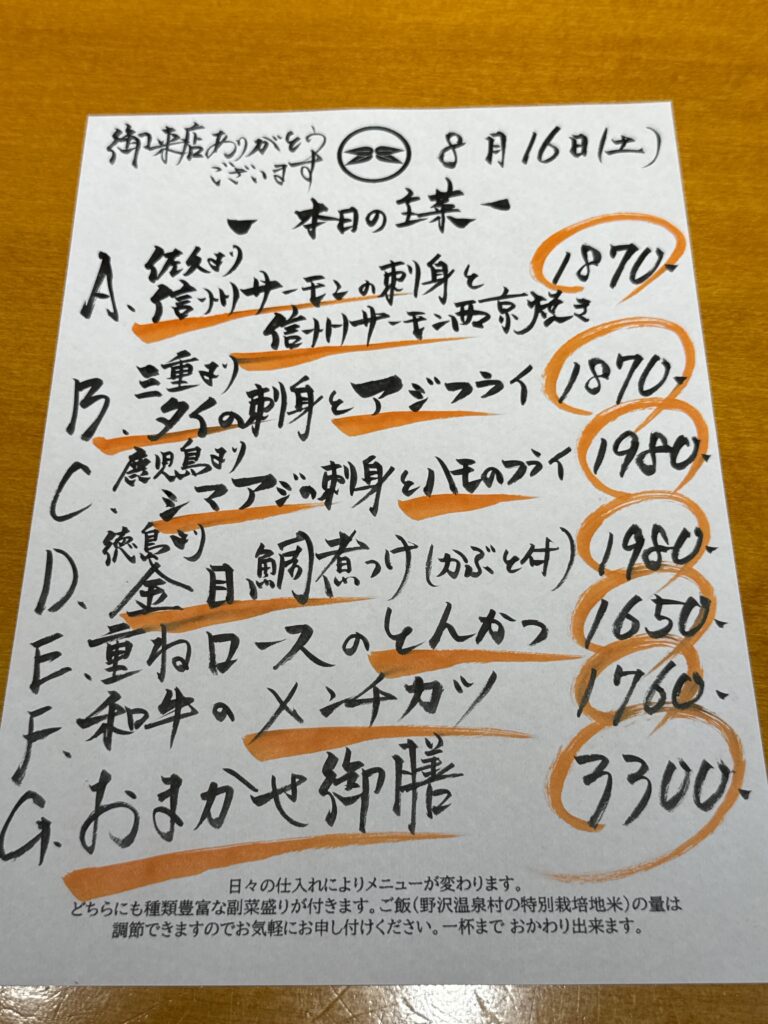 御来店ありがとう
ございます
8月16日(土)
本日の主菜
A. 佐久より
信州サーモンの刺身と
信州サーモン西京焼き
1870-
B. 三重より
タイの刺身とアジフライ 1870-
C. 鹿児島より
シマアジの刺身とハモのフライ 1980-
D. 徳島より
金目鯛煮つけ(かぶと付) 1980-
E. 重ねロースのとんかつ 1650-
F. 和牛のメンチカツ 1760-
G. おまかせ御膳 3300-
日々の仕入れによりメニューが変わります。
どちらにも種類豊富な副菜盛りが付きます。ご飯(野沢温泉村の特別栽培地米)の量は
調節できますのでお気軽にお申し付けください。一杯まで おかわり出来ます。